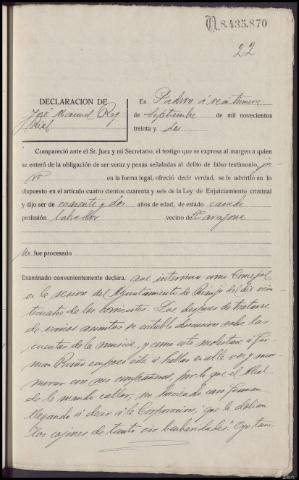 N 8.435.870
22
DECLARACION DE
José Manuel Rey
En Padrón á veintinueve
de Septiembre de mil novecientos
treinta y dos
Compareció ante el Sr. Juez y mi Secretario, el testigo que se expresa al margen a quien
se enteró de la obligación de ser veraz y penas señaladas al delito de falso testimonio,
en la forma legal, ofreció decir verdad, se le advirtió en lo
dispuesto en el artículo cuatro cientos cuarenta y seis de la Ley de Enjuiciamiento criminal
y dijo ser de cuarenta y dos años de edad, de estado casado
profesión labrador vecino de
fue procesado
Examinado convenientemente declara: que intervino como Concejal
en la sesión del Ayuntamiento de del día
Que después de tratarse
de varios asuntos se entabló discusión sobre las
cuentas de la música, y como esto molestara á
empezase este á hablar en alta voz y
con sus compañeros, por lo que el Alcalde
le mandó callar, no haciendo caso
llegando á decir á la Corporación, que le dolían
los cojones de tanto oir barbaridades. Que